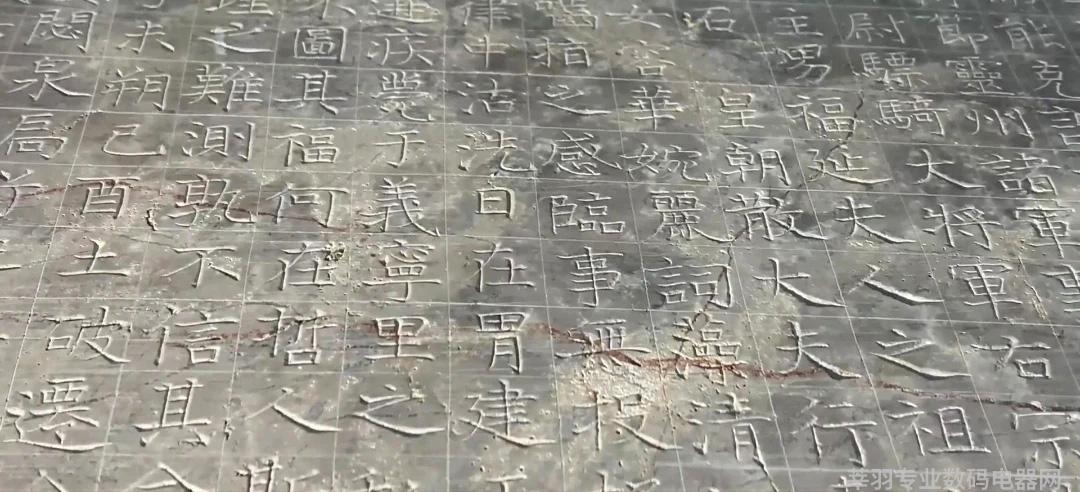 能克
節靈州諸軍事
尉驃騎大將軍右宗
主男福延夫人之祖
石皇朝散大夫行
女容華婉麗詞藻清
齒指之感臨事無投
律中沽洗白在胃建
疾甍于義寧里之
不圖其福何在哲人斯
理之難測孰不信其
未朔己酉土破遷
悶泉局
莘羽专业数码电器网